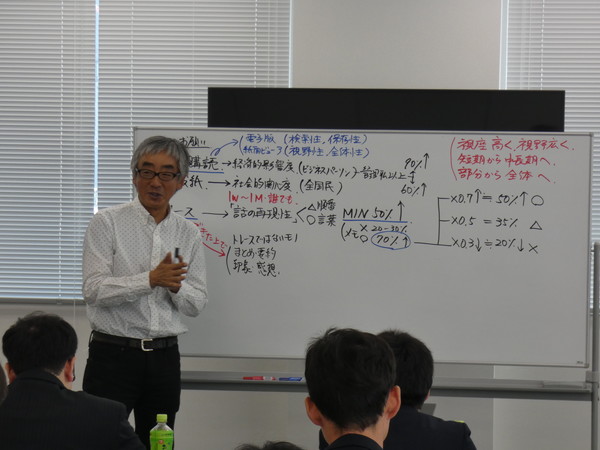 お願い
電子版 (検索性、保存性)
紙面ビューア (視野性、全体性)
購読 → 経済的影響度 (ビジネスパーソン)
90%↑
紙 → 社会的関心度 (全国民)
60%↑
1W〜1M 誰でも
ース → 「話の再現性」 < △順番
○言葉
MIN 50%↑
× 20-30%
(メモ○ 70%↑
×0.7↑≒50%↑ ○
×0.5 = 35% △
×0.3↓≒20%↓ ×
トレースではないモノ
まとめ・要約
印象・感想
視座高く、視野広く、
短期から中長期へ、
部分から全体へ